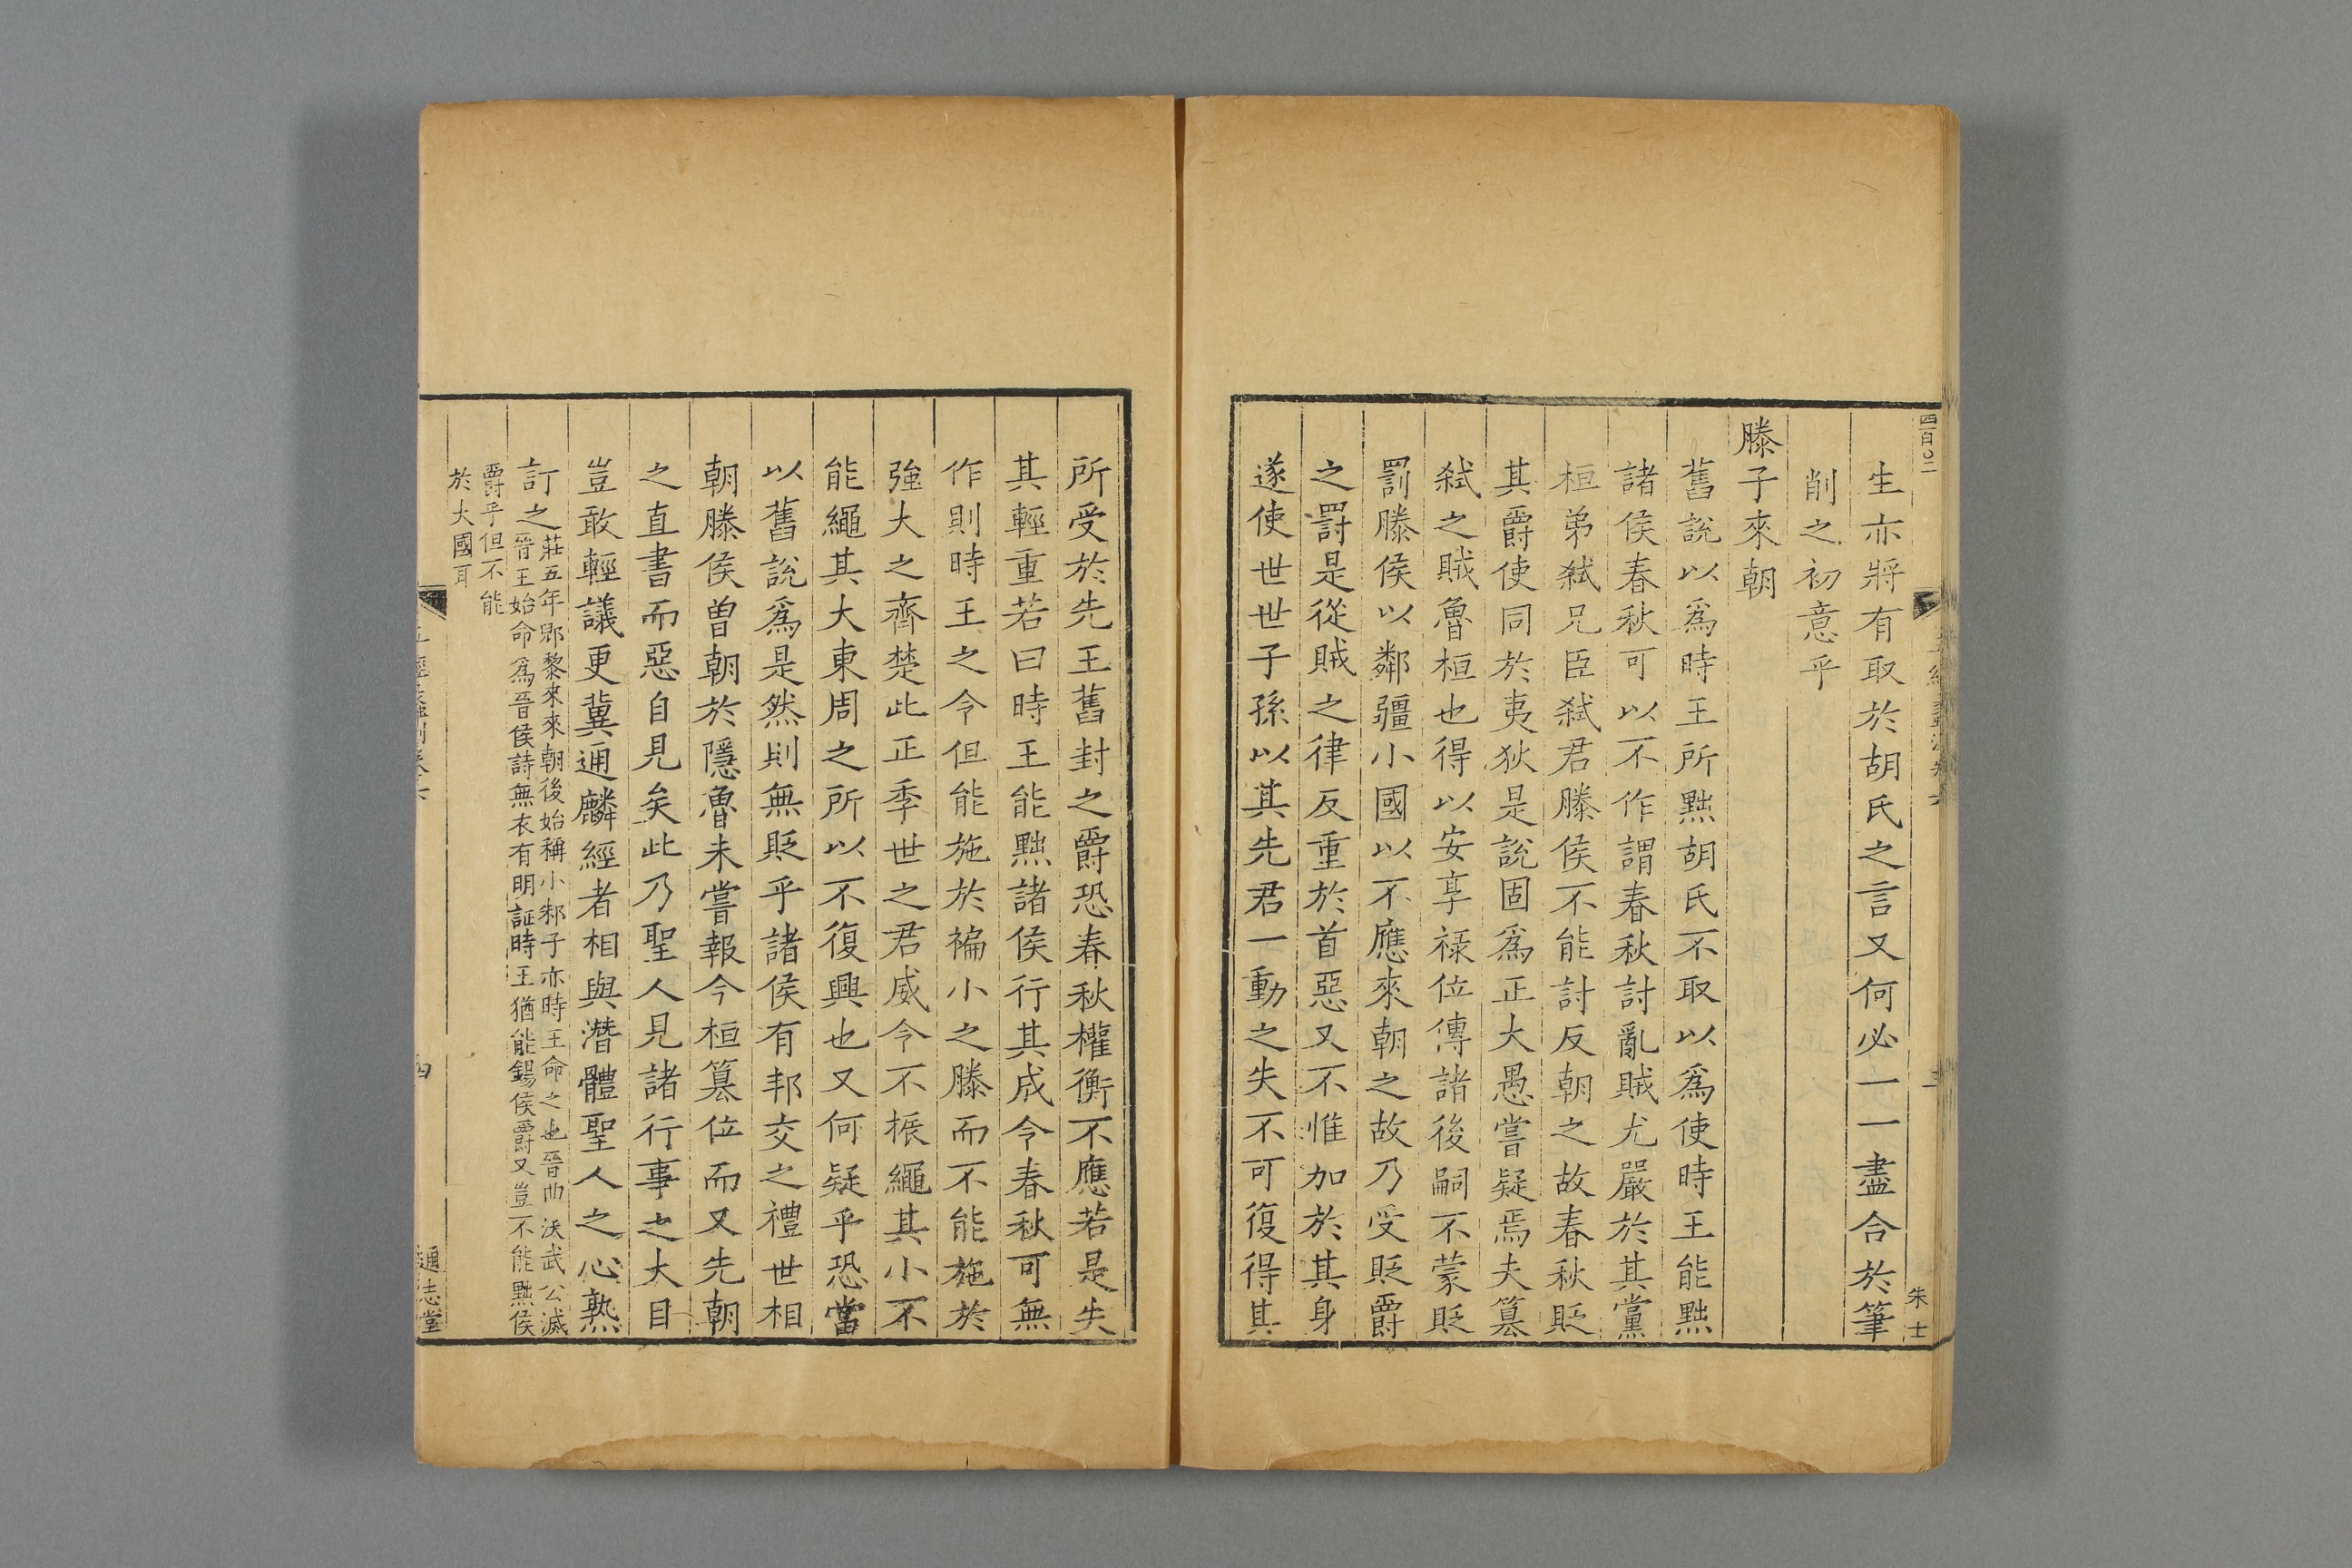 四百〇二
朱士
生亦將有取於胡氏之言又何必一一盡合於筆
削之初意乎
滕子來朝
舊說以爲時王所黜胡氏不取以爲使時王能黜
諸侯春秋可以不作謂春秋討亂賊尤嚴於其黨
桓弟弑兄臣弑君滕侯不能討反朝之故春秋貶
其爵使同於夷狄是說固爲正大愚嘗疑焉夫簒
弑之賊魯桓也得以安享祿位傳諸後嗣不蒙貶
罰滕侯以鄰疆小國以不應來朝之故乃受貶爵
之罰是從賊之律反重於首惡又不惟加於其身
遂使世世子孫以其先君一動之失不可復得其
所受於先王舊封之爵恐春秋權衡不應若是失
其輕重若曰時王能黜諸侯行其威令春秋可無
作則時王之令但能施於褊小之滕而不能施於
強大之齊楚此正季世之君威令不振繩其小不
能繩其大東周之所以不復興也又何疑乎恐當
以舊說爲是然則無貶乎諸侯有邦交之禮世相
朝滕侯曾朝於隱魯未嘗報今桓簒位而又先朝
之直書而惡自見矣此乃聖人見諸行事之大目
豈敢輕議更冀通麟經者相與潛體聖人之心熟
訂之莊五年郳黎來來朝後始稱小邾子亦時王命之也晉曲沃武公滅
晉王始命爲晉侯詩無衣有明証時王猶能錫侯爵又豈不能黜侯
爵乎但不能
於大國耳
四
通志堂